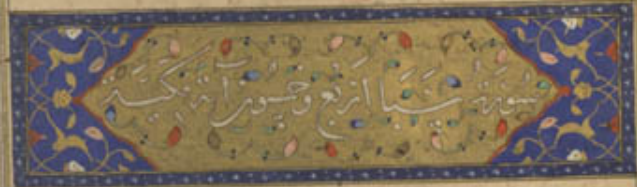 سورة سبا اربع وخمسون آية مكية